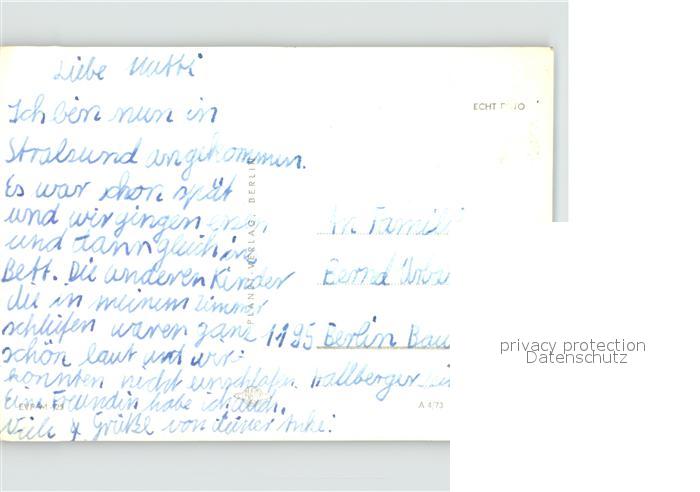 Liebe Mutti
Ich bin nun in
Stralsund angekommen.
Es war schon spät
und wir gingen essen
und dann gleich ins
Bett. Die anderen Kinder
die in meinem Zimmer
schliefen waren ganz
schön laut und wir
konnten nicht einschlafen.
Eine Freundin habe ich auch.
Viele Grüße von deiner Anke!
PLANET-VERLAG, BERLIN
ECHT FOTO
An Famili
Bernd Urba
1195 Berlin Bau
A 4/73
privacy protection
Datenschutz